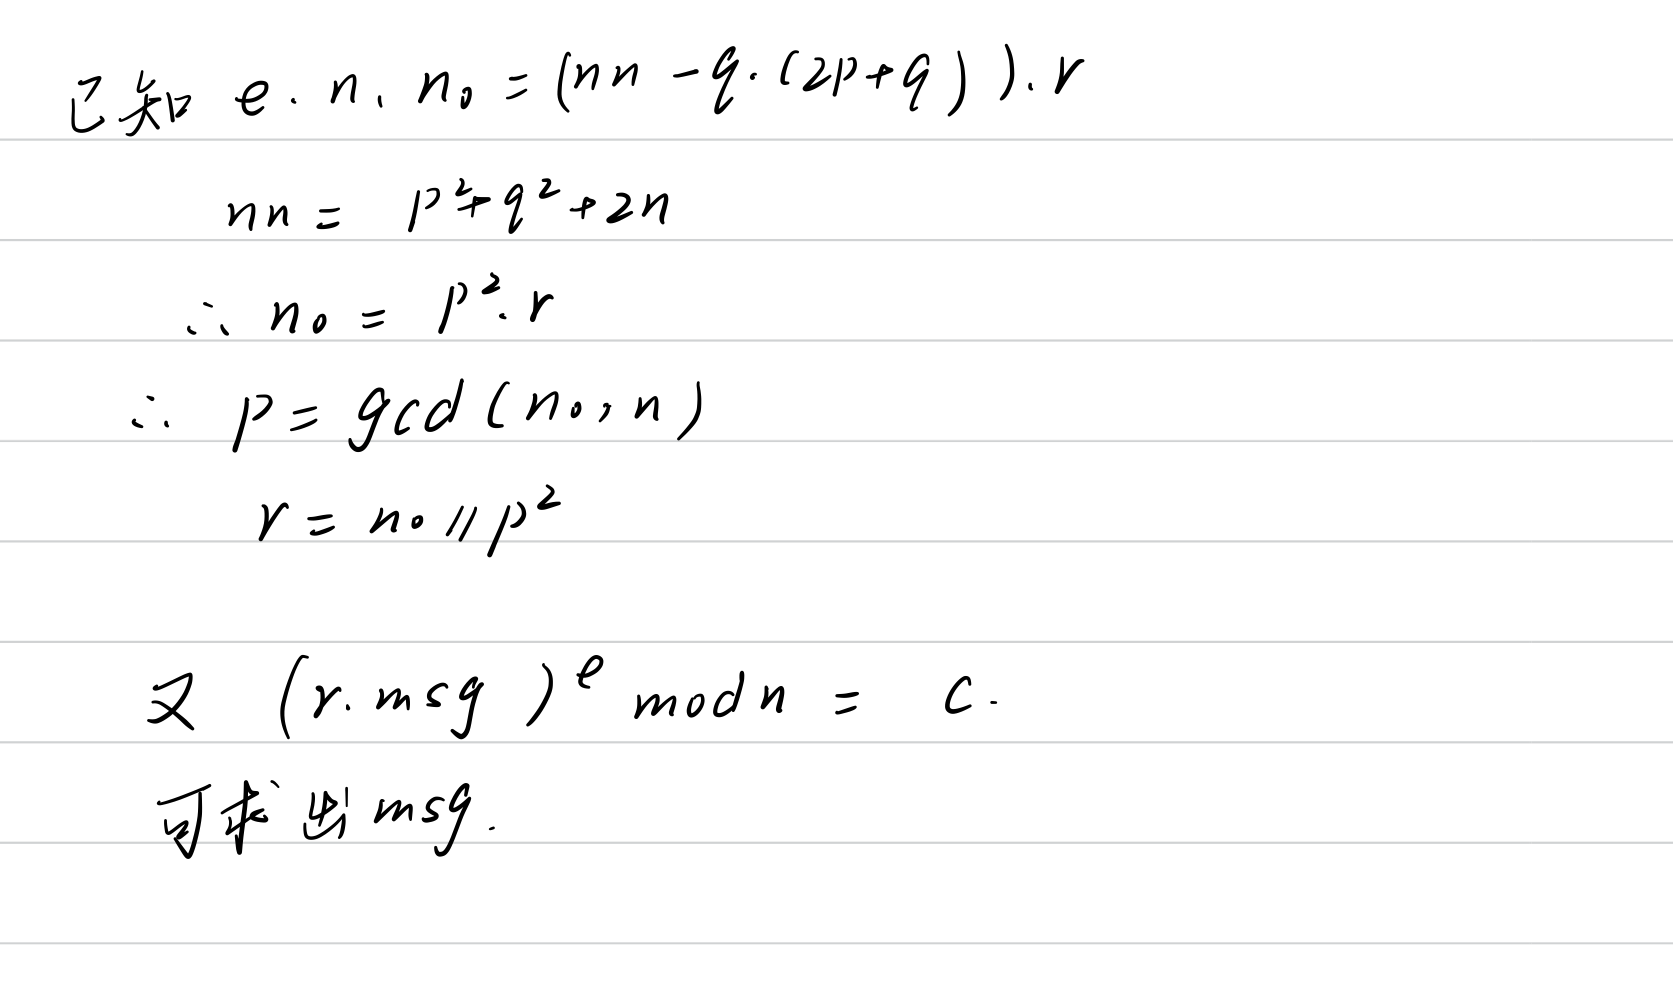 已知 e. n、n₀ = (nn - q·(2p+q)).r
nn = p²+q²+2n
∴ n₀ = p².r
∴ p = gcd(n₀,n)
r = n₀//p²
又 (r.msg)ᵉ mod n = c.
可求出msg.